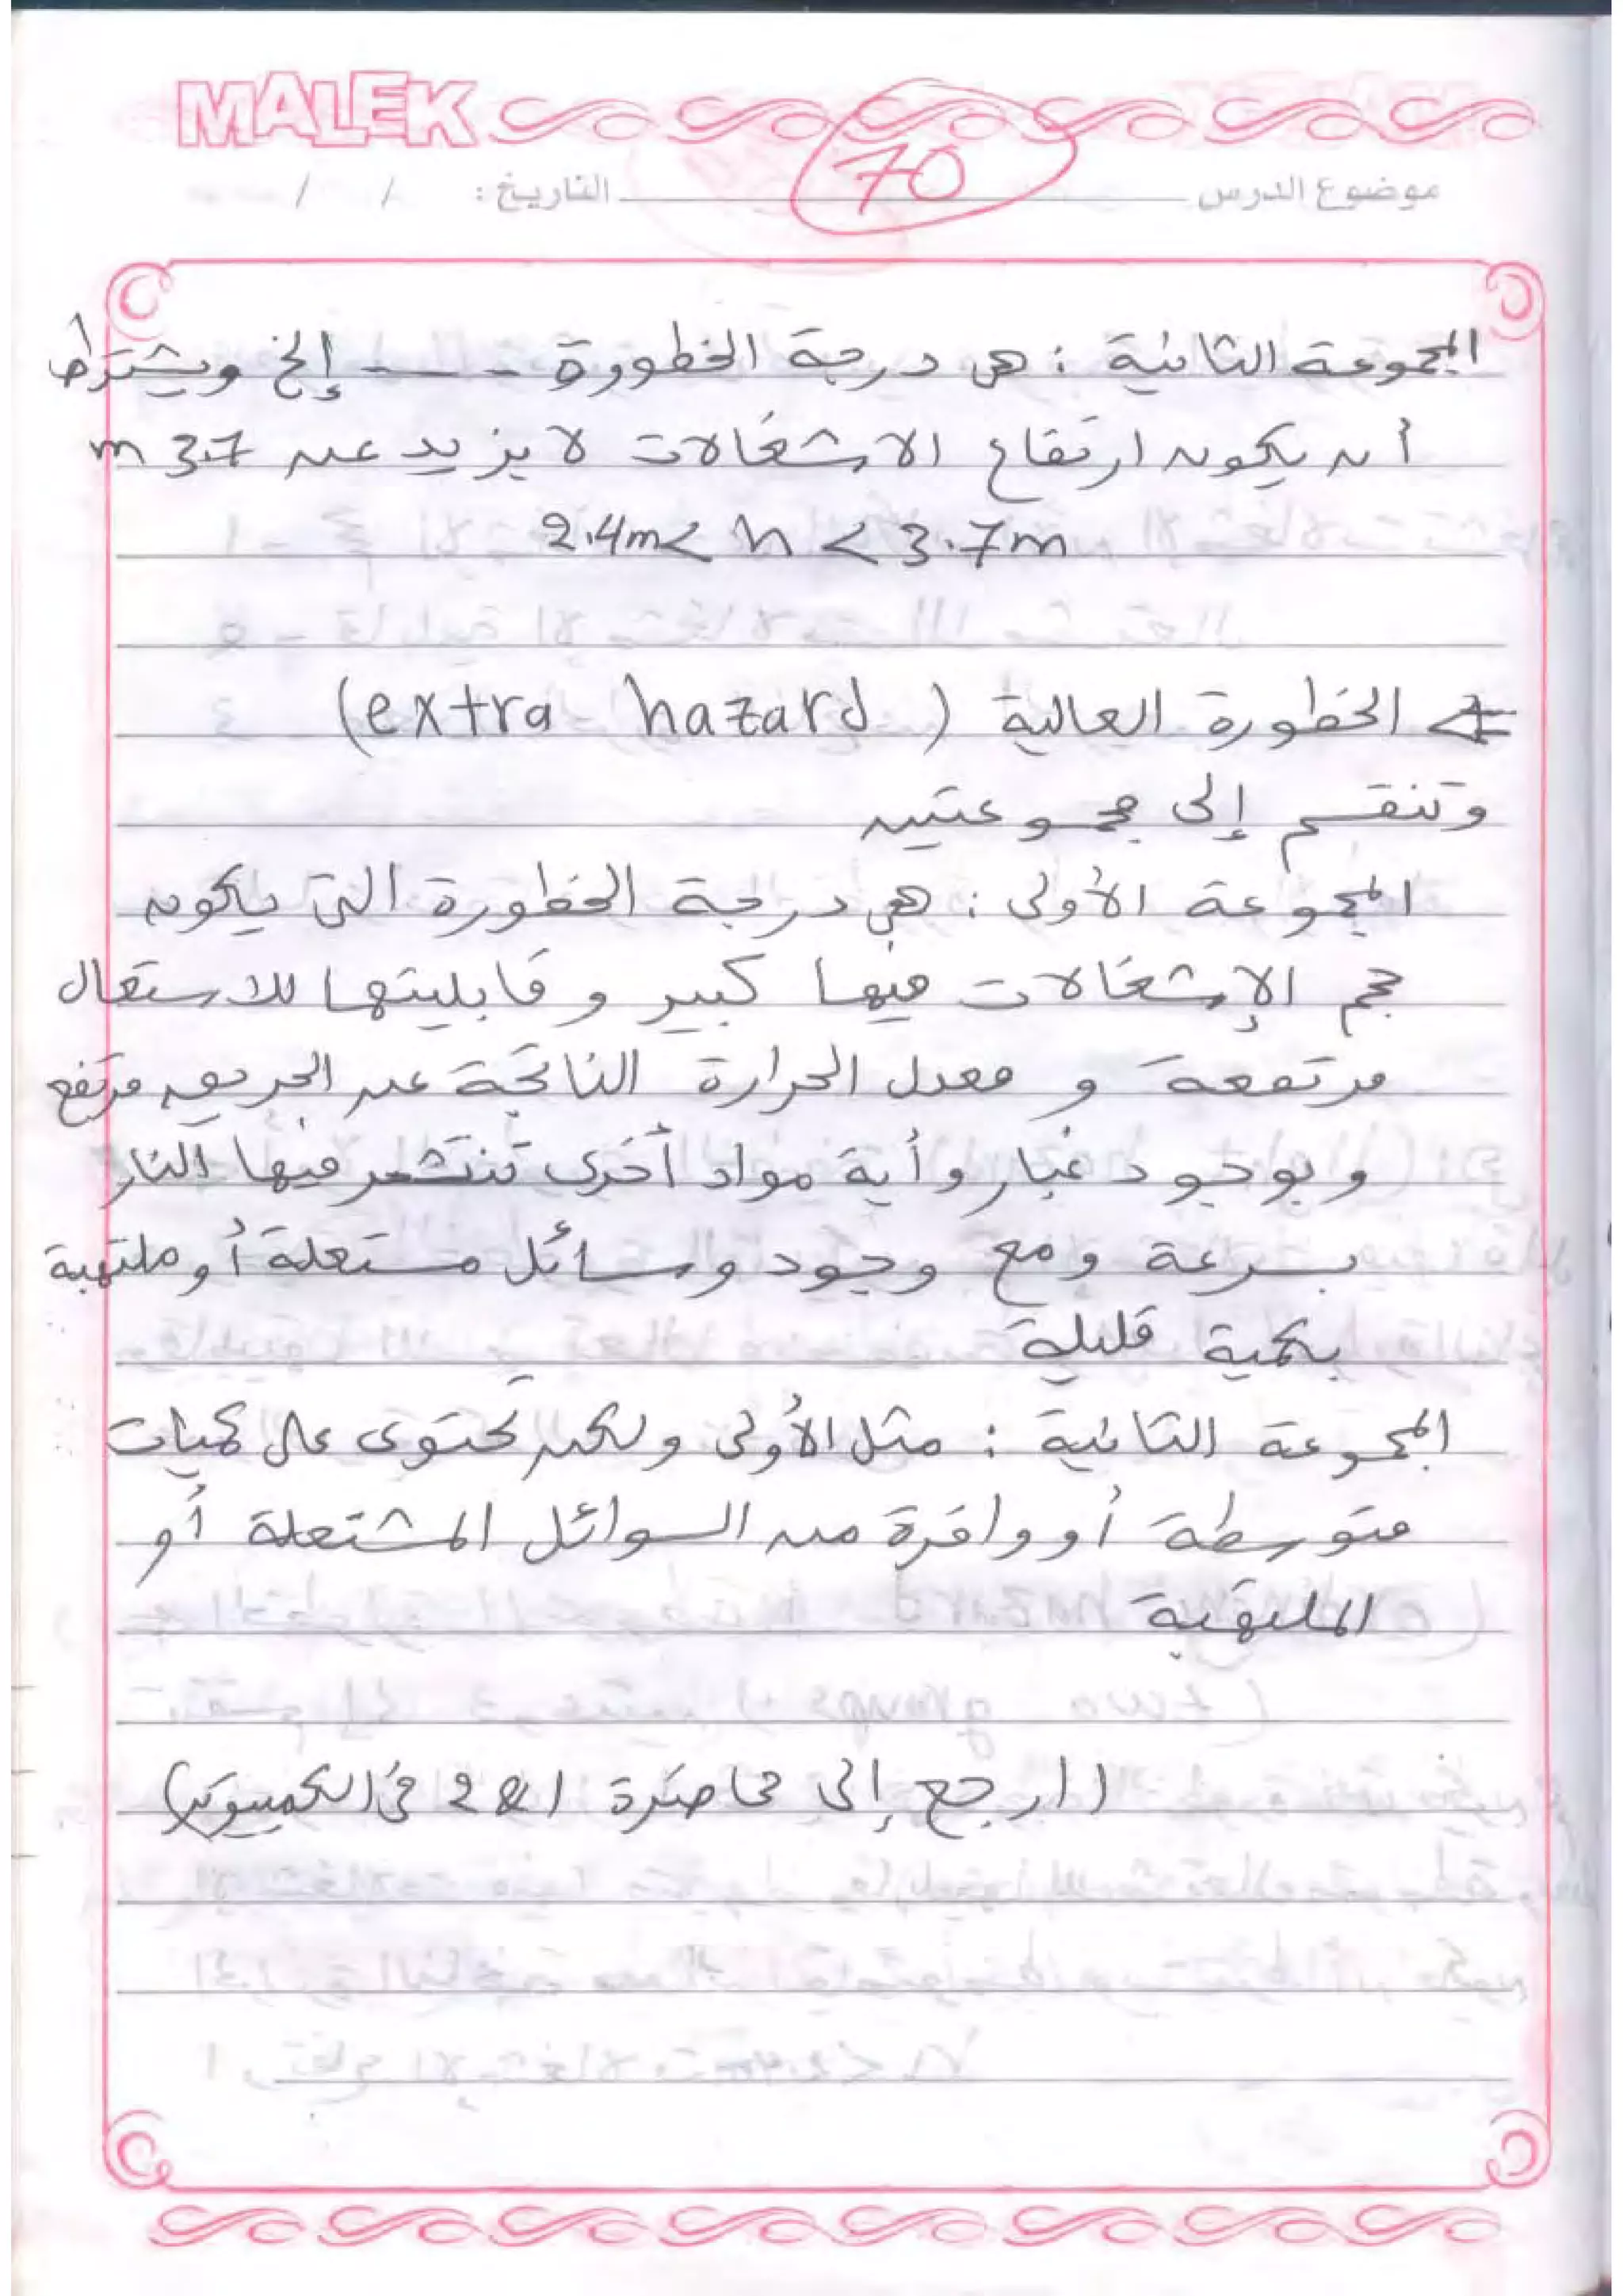 MALEK
70
موضوع الدرس التاريخ: / /
المجموعة الثانية : هى درجة الخطورة - - - إلخ ويشترط
أن يكون ارتفاع الاشغالات لا يزيد عن 3.7 m
2.4m < h < 3.7m
⇐ الخطورة العالية (extra hazard)
وتنقسم إلى مجموعتين
المجموعة الأولى : هي درجة الخطورة التى يكون
حجم الإشغالات فيها كبير و قابليتها للاستعال
مرتفعة و معدل الحرارة الناتجة عن الحريق مرتفع
و بوجود غبار وأية مواد أخرى تنتشر فيها النار
بسرعة ومع وجود وسائل مستعلة أو ملتهبة
بكمية قليلة
المجموعة الثانية : مثل الأولى ولكن تحتوى على كميات
متوسطة أو وافرة من السوائل المشتعلة أو
الملتهبة
(ارجع إلى محاضرة 1 & 2 فى الكمبيوتر)